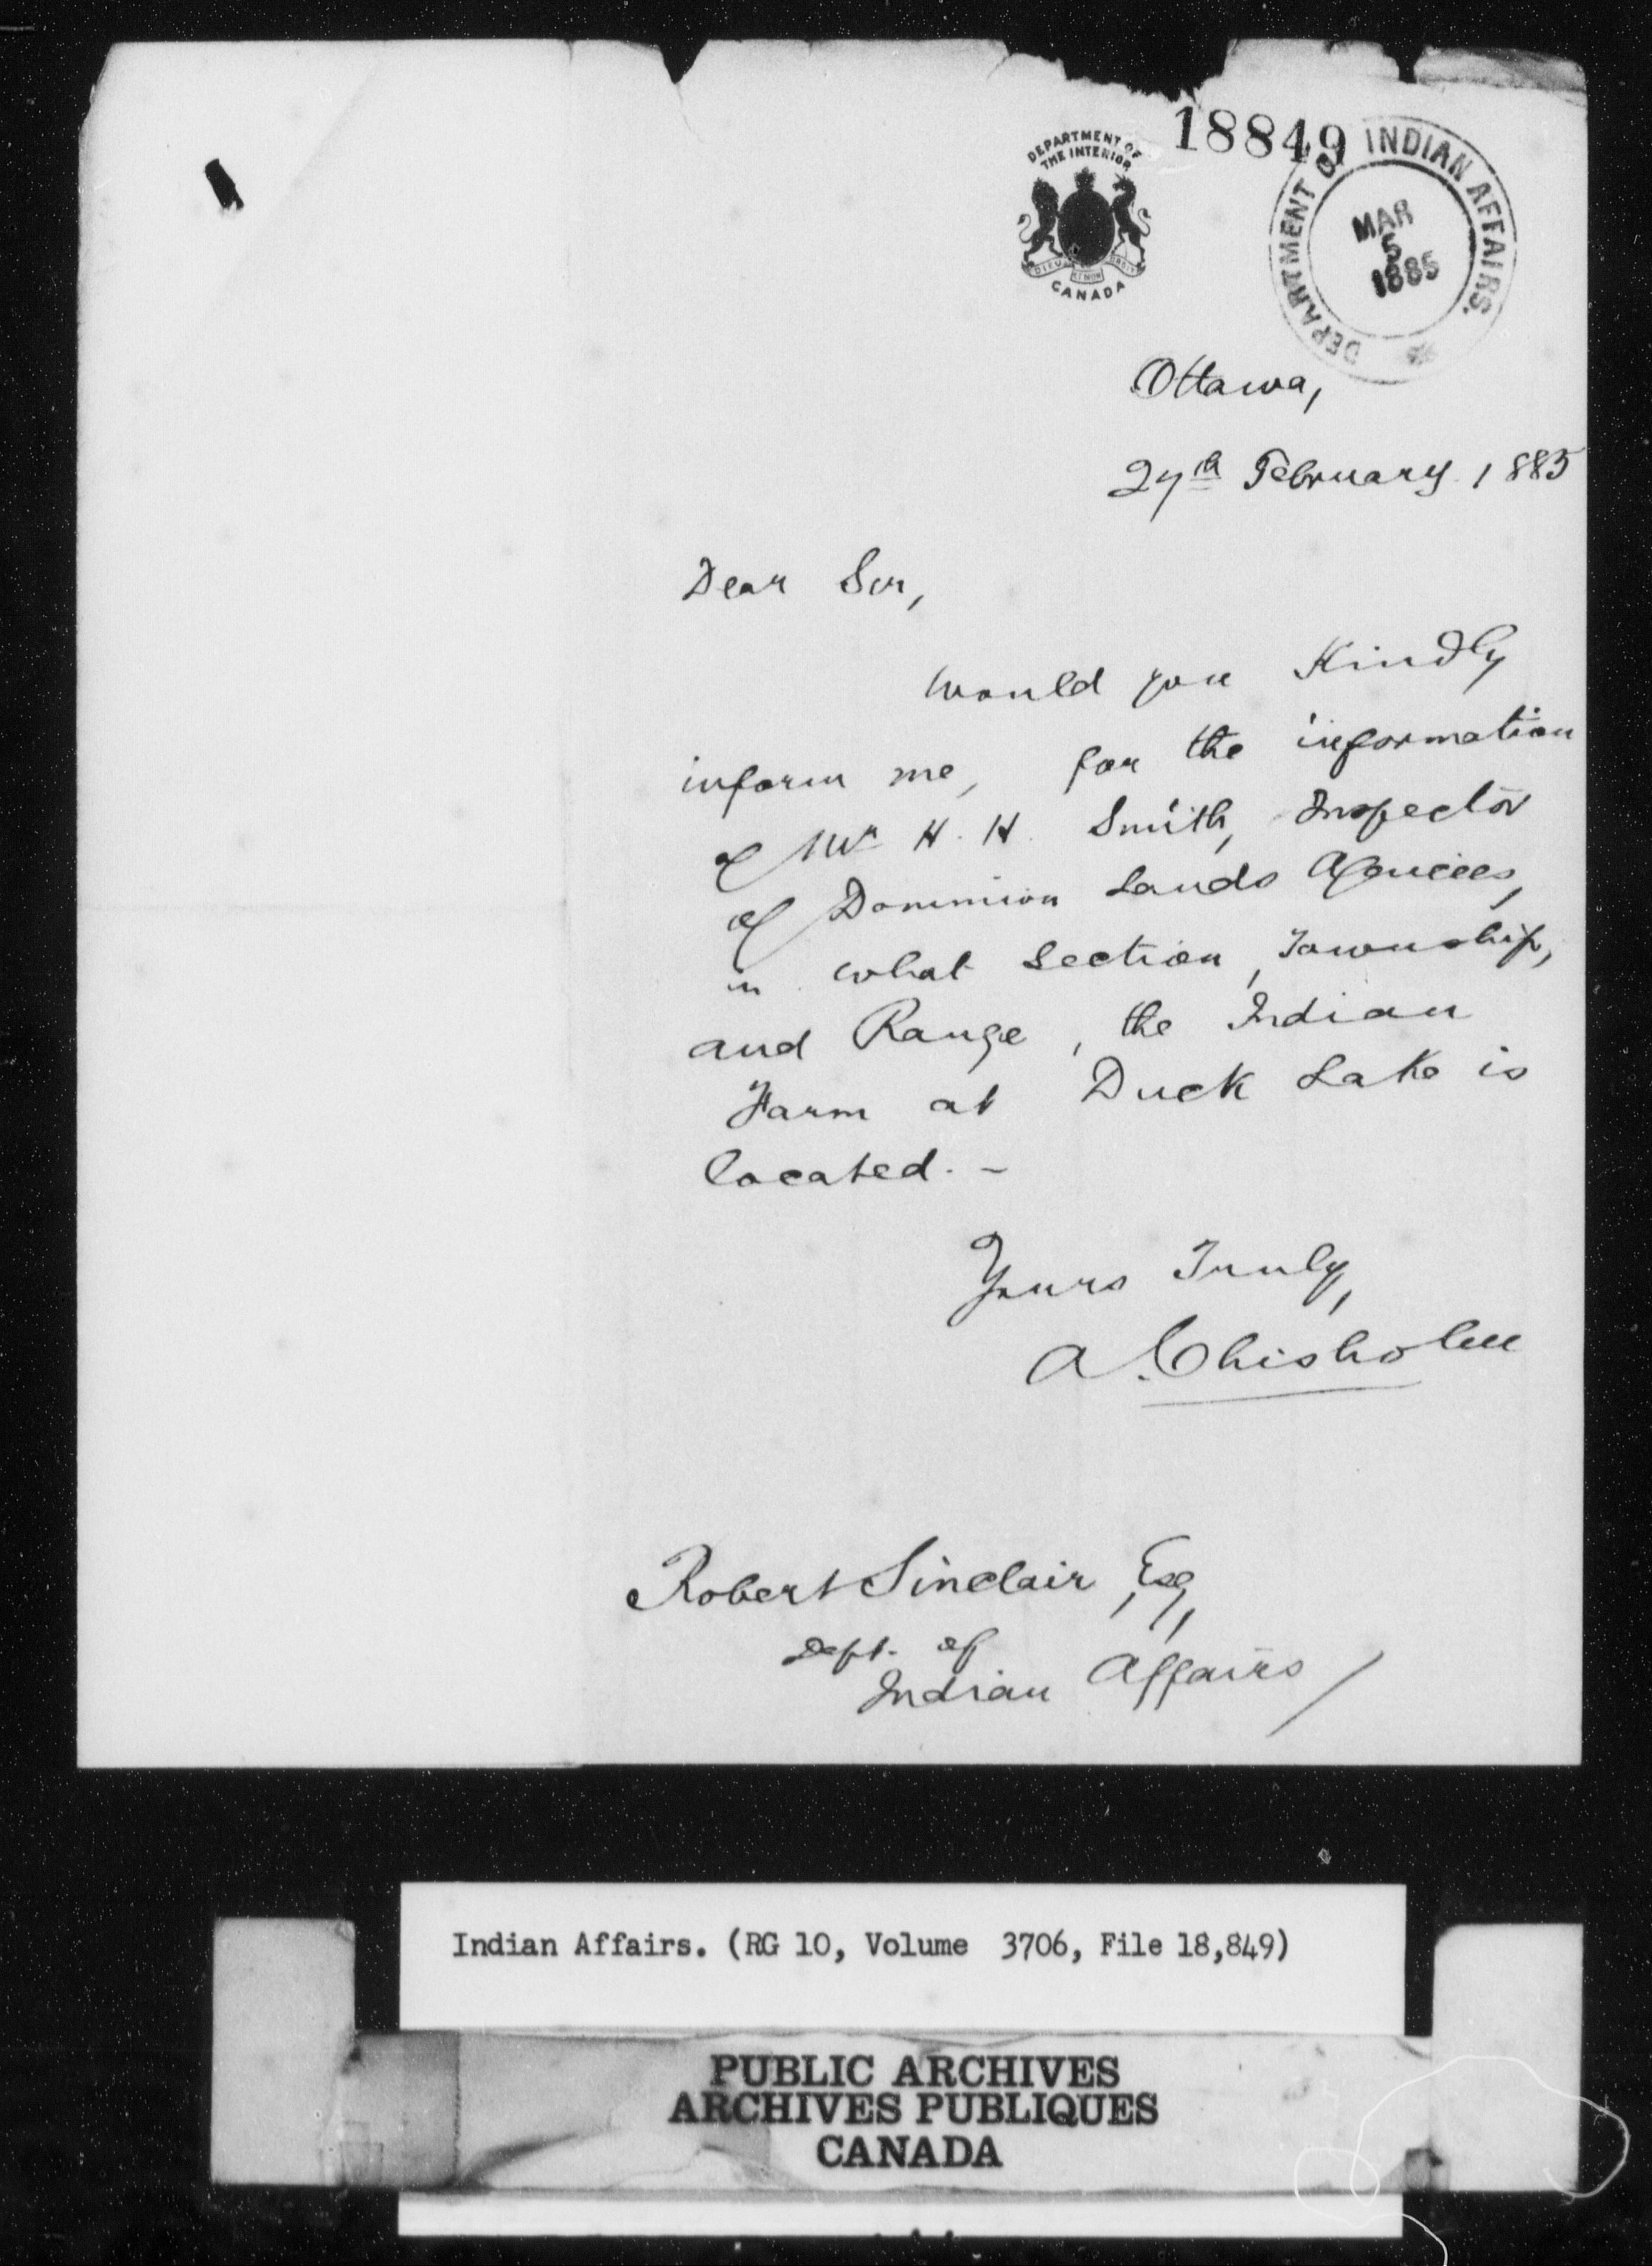 18849
DEPARTMENT OF
THE INTERIOR
DIEU ET MON DROIT
CANADA
DEPARTMENT OF INDIAN AFFAIRS.
MAR
5
1885
Ottawa,
27th February 1885
Dear Sir,
Would you Kindly
inform me, for the information
of Mr H. H. Smith, Inspector
of Dominion Lands Agencies,
in what Section, Township,
and Range, the Indian
Farm at Duck Lake is
located. -
Yours Truly,
A. Chisholm
Robert Sinclair, Esq,
Dept. of
Indian Affairs /
Indian Affairs. (RG 10, Volume 3706, File 18,849)
PUBLIC ARCHIVES
ARCHIVES PUBLIQUES
CANADA